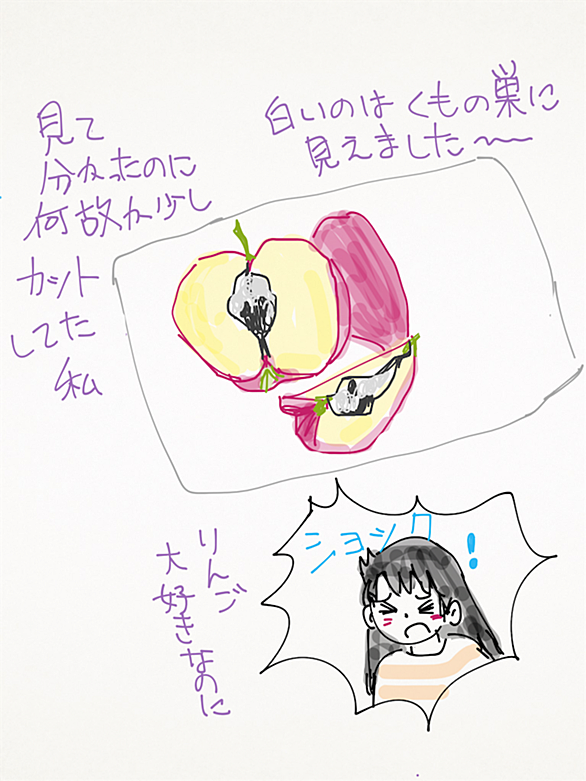 白いのは くもの巣に
見えました〜
見て
分かったのに
何故か少し
カット
してた
私
ショック！
りんご
大好きなのに